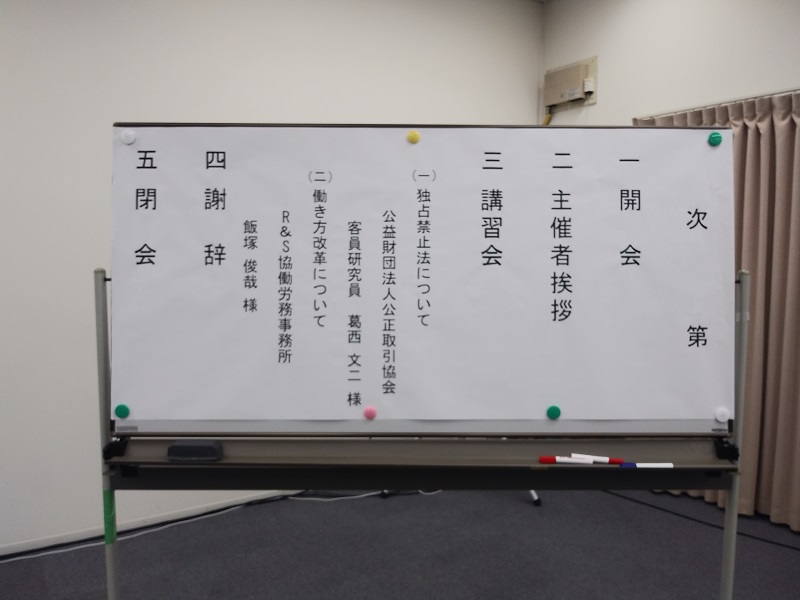 次 第
一 開 会
二 主催者挨拶
三 講習会
(一) 独占禁止法について
公益財団法人公正取引協会
客員研究員 葛西 文二 様
(二) 働き方改革について
R&S協働労務事務所
飯塚 俊哉 様
四 謝 辞
五 閉 会